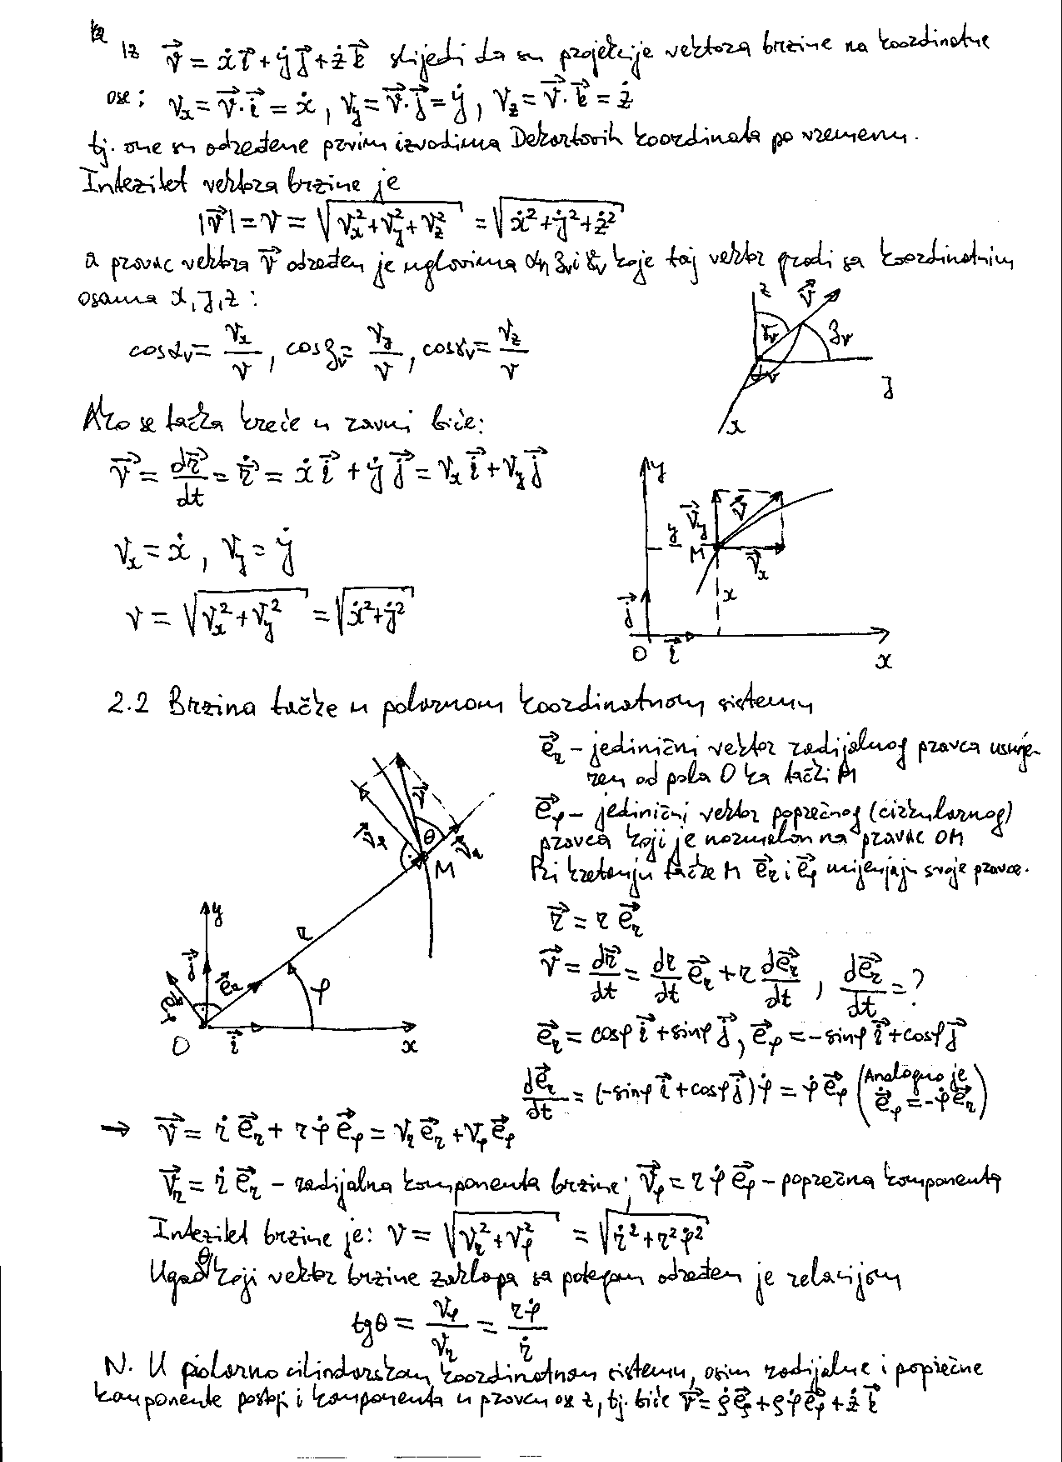 Iz $\vec{v} = \dot{x}\vec{i} + \dot{y}\vec{j} + \dot{z}\vec{k}$ slijedi da su projekcije vektora brzine na koordinatne
ose: $v_x = \vec{v}\cdot\vec{i} = \dot{x}$, $v_y = \vec{v}\cdot\vec{j} = \dot{y}$, $v_z = \vec{v}\cdot\vec{k} = \dot{z}$
tj. one su određene prvim izvodima Dekartovih koordinata po vremenu.
Intezitet vektora brzine je
$|\vec{v}| = v = \sqrt{v_x^2 + v_y^2 + v_z^2} = \sqrt{\dot{x}^2 + \dot{y}^2 + \dot{z}^2}$
a pravac vektora $\vec{v}$ određen je uglovima $\alpha_v, \beta_v$ i $\gamma_v$ koje taj vektor gradi sa koordinatnim
osama x, y, z:
$\cos\alpha_v = \frac{v_x}{v}$, $\cos\beta_v = \frac{v_y}{v}$, $\cos\gamma_v = \frac{v_z}{v}$
z $\vec{v}$
$\gamma_v$ $\beta_v$
$\alpha_v$ y
x
Ako se tačka kreće u ravni biće:
$\vec{v} = \frac{d\vec{r}}{dt} = \dot{\vec{r}} = \dot{x}\vec{i} + \dot{y}\vec{j} = v_x\vec{i} + v_y\vec{j}$
$v_x = \dot{x}$, $v_y = \dot{y}$
$v = \sqrt{v_x^2 + v_y^2} = \sqrt{\dot{x}^2 + \dot{y}^2}$
y
$\vec{v}_y$ $\vec{v}$
y M $\vec{v}_x$
x
$\vec{j}$
O $\vec{i}$ x
2.2 Brzina tačke u polarnom koordinatnom sistemu
$\vec{e}_r$ - jedinični vektor radijalnog pravca usmje-
ren od pola O ka tački M
$\vec{e}_\varphi$ - jedinični vektor poprečnog (cirkularnog)
pravca koji je normalan na pravac OM
Pri kretanju tačke M $\vec{e}_r$ i $\vec{e}_\varphi$ mijenjaju svoje pravce.
$\vec{r} = r\vec{e}_r$
$\vec{v} = \frac{d\vec{r}}{dt} = \frac{dr}{dt}\vec{e}_r + r\frac{d\vec{e}_r}{dt}$, $\frac{d\vec{e}_r}{dt} = ?$
$\vec{e}_r = \cos\varphi\vec{i} + \sin\varphi\vec{j}$, $\vec{e}_\varphi = -\sin\varphi\vec{i} + \cos\varphi\vec{j}$
$\frac{d\vec{e}_r}{dt} = (-\sin\varphi\vec{i} + \cos\varphi\vec{j})\dot{\varphi} = \dot{\varphi}\vec{e}_\varphi$ (Analogno je $\dot{\vec{e}}_\varphi = -\dot{\varphi}\vec{e}_r$)
$\vec{v}$
θ
$\vec{v}_r$ $\vec{v}_r$
M
y r
$\vec{j}$ $\vec{e}_r$ φ
$\vec{e}_\varphi$
O $\vec{i}$ x
→ $\vec{v} = \dot{r}\vec{e}_r + r\dot{\varphi}\vec{e}_\varphi = v_r\vec{e}_r + v_\varphi\vec{e}_\varphi$
$\vec{v}_r = \dot{r}\vec{e}_r$ - radijalna komponenta brzine; $\vec{v}_\varphi = r\dot{\varphi}\vec{e}_\varphi$ - poprečna komponenta
Intezitet brzine je: $v = \sqrt{v_r^2 + v_\varphi^2} = \sqrt{\dot{r}^2 + r^2\dot{\varphi}^2}$
Ugao θ koji vektor brzine zaklapa sa potegom određen je relacijom
$tg\theta = \frac{v_\varphi}{v_r} = \frac{r\dot{\varphi}}{\dot{r}}$
N. U polarno cilindarskom koordinatnom sistemu, osim radijalne i poprečne
komponente postoji i komponenta u pravcu ose z, tj. biće $\vec{v} = \dot{\rho}\vec{e}_\rho + \rho\dot{\varphi}\vec{e}_\varphi + \dot{z}\vec{k}$